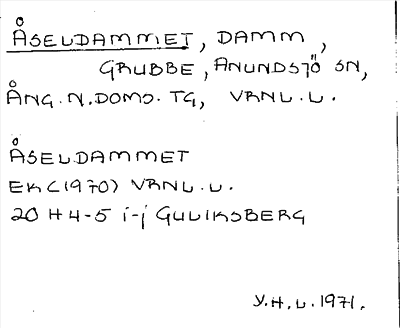 ÅSELDAMMET, DAMM,
GRUBBE, ANUNDSJÖ SN,
ÅNG. N. DOMS. TG, VRNL. L.
ÅSELDAMMET
EK (1970) VRNL. L.
20 H 4-5 i-j GULIKSBERG
Y. H. L. 1971.